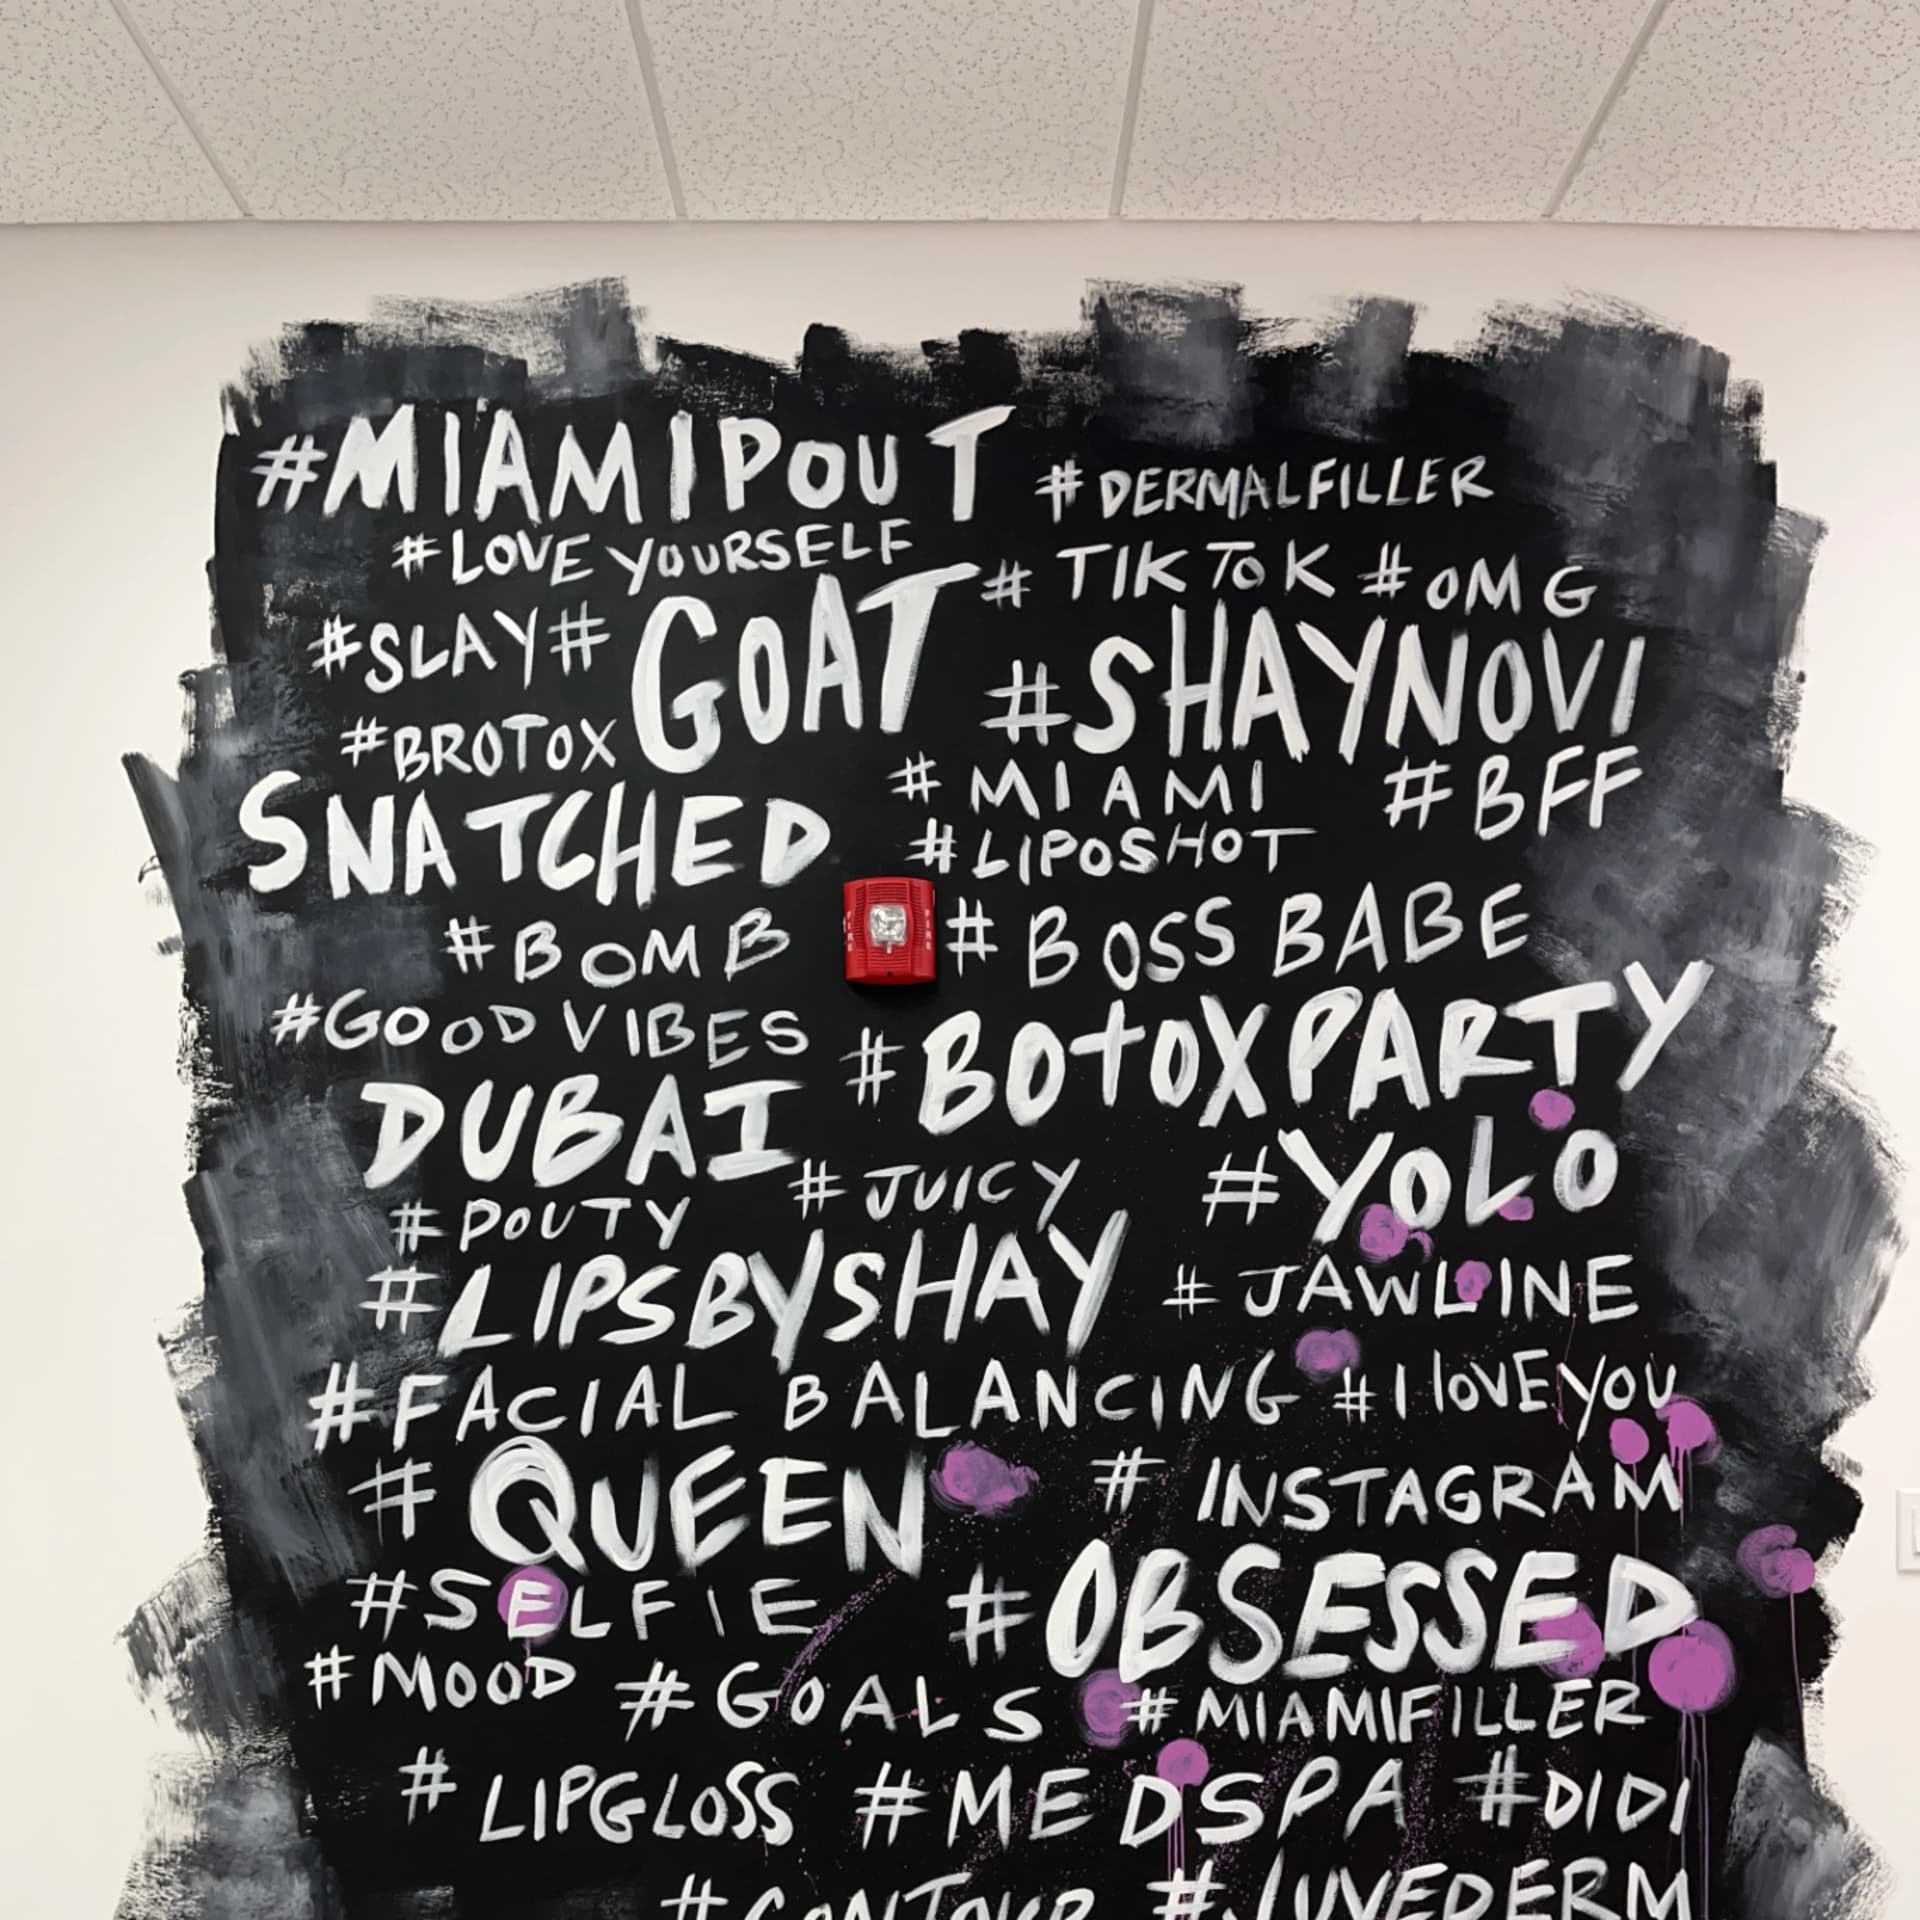 #MIAMIPOUT #DERMALFILLER
#LOVE YOURSELF
#TIKTOK #OMG
#SLAY #GOAT #SHAYNOVI
#BROTOX
#MIAMI #BFF
SNATCHED #LIPOSHOT
#BOMB FIRE FIRE #BOSS BABE
#GOOD VIBES #BOTOXPARTY
DUBAI #JUICY #YOLO
#POUTY
#LIPSBYSHAY #JAWLINE
#FACIAL BALANCING #I LOVE YOU
#QUEEN #INSTAGRAM
#SELFIE #OBSESSED
#MOOD #GOALS #MIAMIFILLER
#LIPGLOSS #MEDSPA #DIDI
#CONTOUR #JUVEDERM